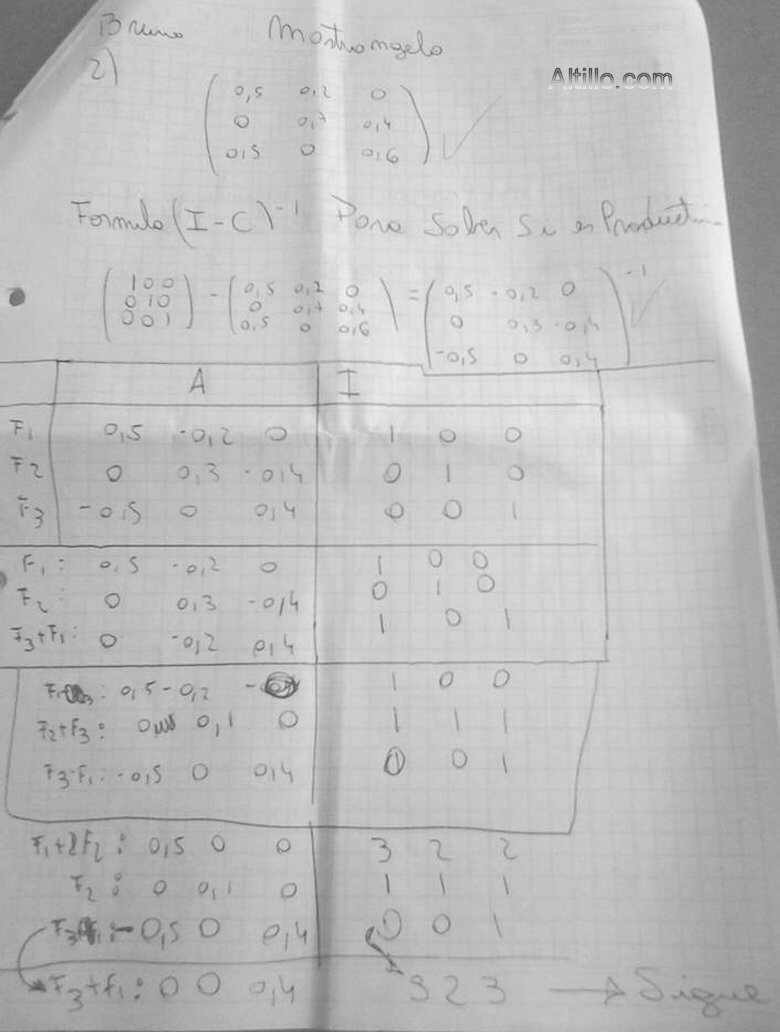 Bruno Mostrangelo
Altillo.com
2)
0,5 0,2 0
0 0,7 0,4
0,5 0 0,6
Formula (I-C)^-1 Para Saber Si es
(1 0 0 - (0,5 0,2 0 = (0,5 -0,2 0 )^-1
0 1 0 0 0,7 0,4 0 0,3 -0,4
0 0 1) 0,5 0 0,6) -0,5 0 0,4
A I
F1 0,5 -0,2 0 1 0 0
F2 0 0,3 -0,4 0 1 0
F3 -0,5 0 0,4 0 0 1
F1: 0,5 -0,2 0 1 0 0
F2: 0 0,3 -0,4 0 1 0
F3+F1: 0 -0,2 0,4 1 0 1
: 0,5 -0,2 - 1 0 0
F2+F3: 0 0,1 0 1 1 1
F3-F1: -0,5 0 0,4 0 0 1
F1+2F2: 0,5 0 0 3 2 2
F2: 0 0,1 0 1 1 1
-0,5 0 0,4 0 0 1
F3+F1: 0 0 0,4 3 2 3 → Sigue